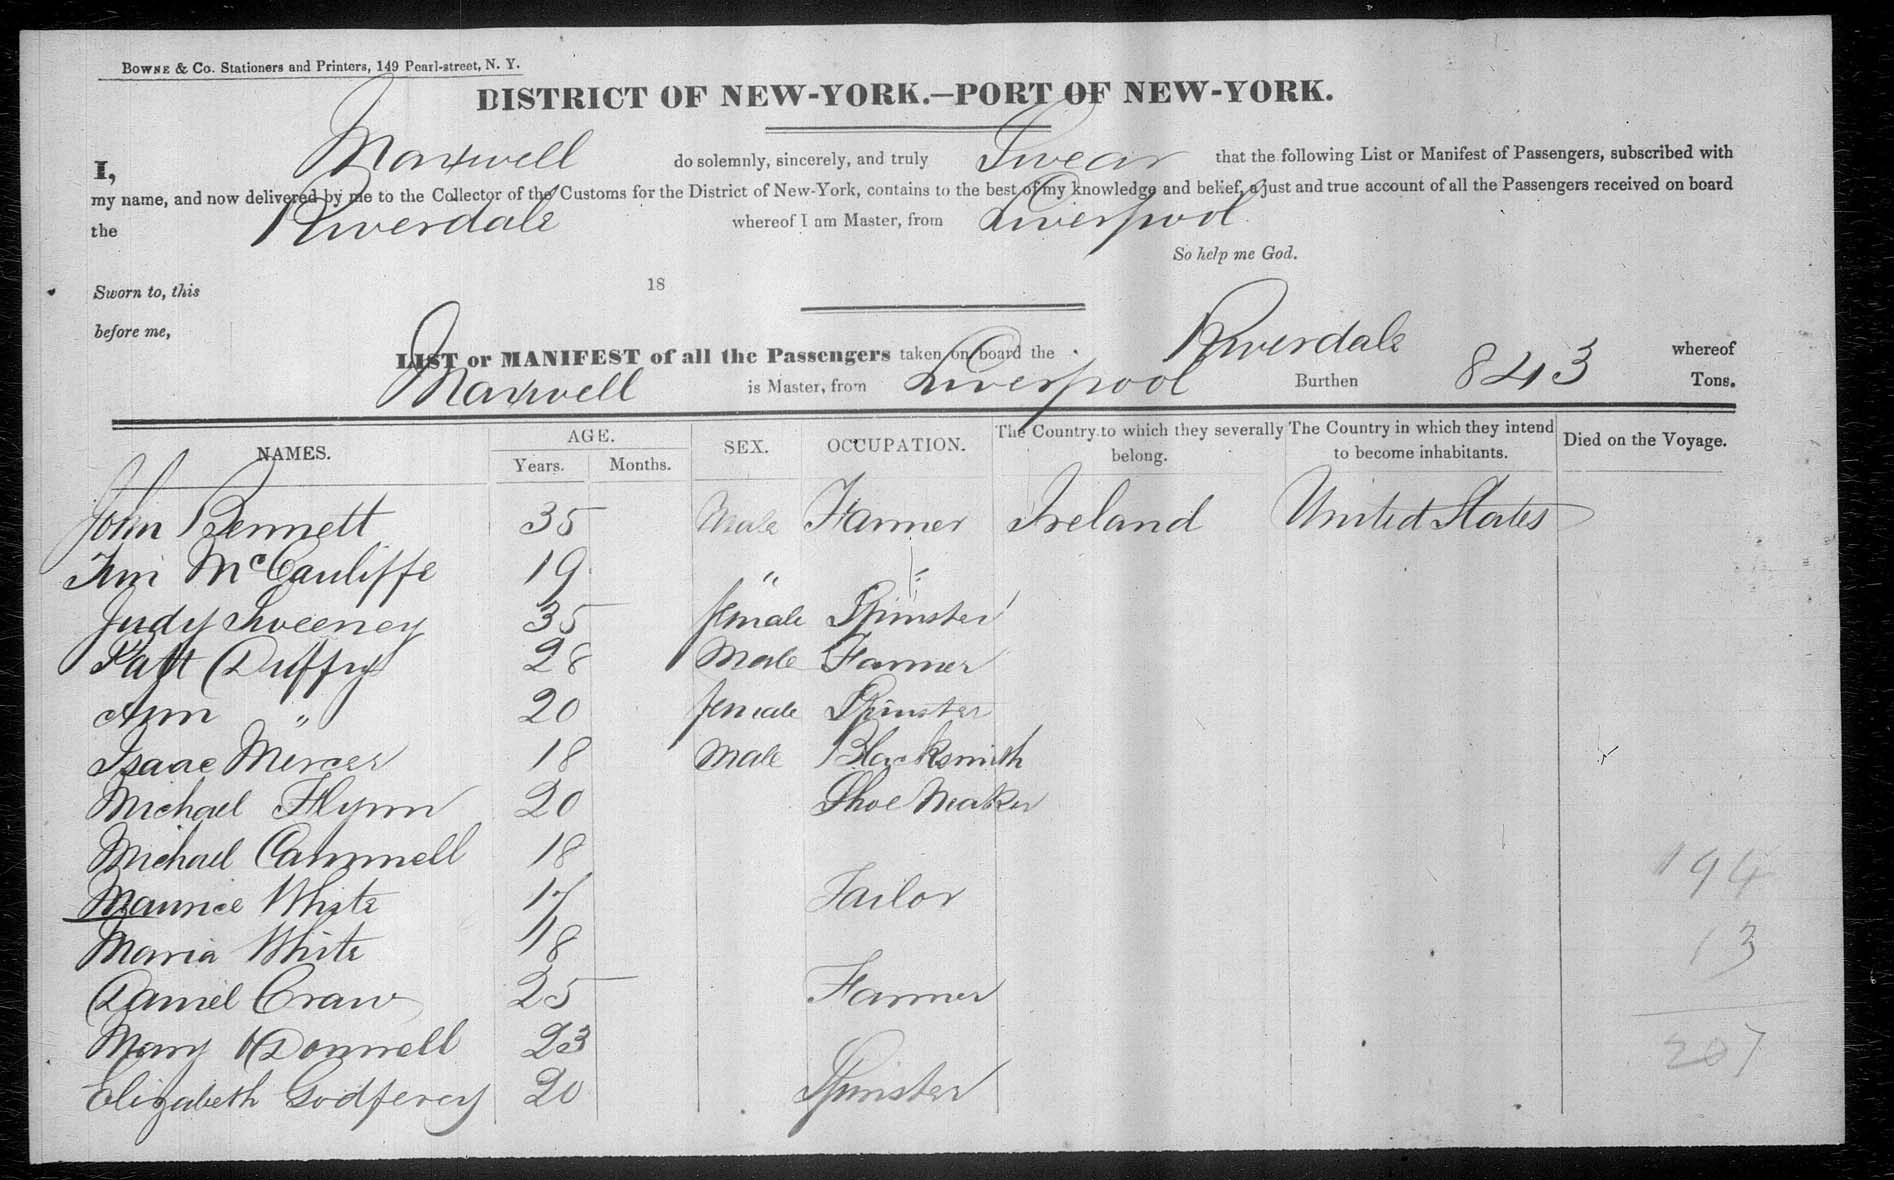 BOWNE & Co. Stationers and Printers, 149 Pearl-street, N. Y.
DISTRICT OF NEW-YORK.—PORT OF NEW-YORK.
I, Maxwell do solemnly, sincerely, and truly Swear that the following List or Manifest of Passengers, subscribed with
my name, and now delivered by me to the Collector of the Customs for the District of New-York, contains to the best of my knowledge and belief, a just and true account of all the Passengers received on board
the Riverdale whereof I am Master, from Liverpool
So help me God.
Sworn to, this 18
before me,
LIST or MANIFEST of all the Passengers taken on board the Riverdale whereof
Maxwell is Master, from Liverpool Burthen 843 Tons.
NAMES. AGE. SEX. OCCUPATION. The Country to which they severally belong. The Country in which they intend to become inhabitants. Died on the Voyage.
Years. Months.
John Bennett 35 Male Farmer Ireland United States
McCauliffe 19 " "
Judy Sweeney 35 female Spinster
Patt Duffy 28 Male Farmer
Ann " 20 female Spinster
Isaac Mercer 18 Male Blacksmith
Michael Flynn 20 Shoe Maker
Michael Cammell 18
Maurice White 17 Tailor
Maria White 18
Daniel Craw 25 Farmer
Mary O Donnell 23
Elizabeth Godferey 20 Spinster
194
13
207